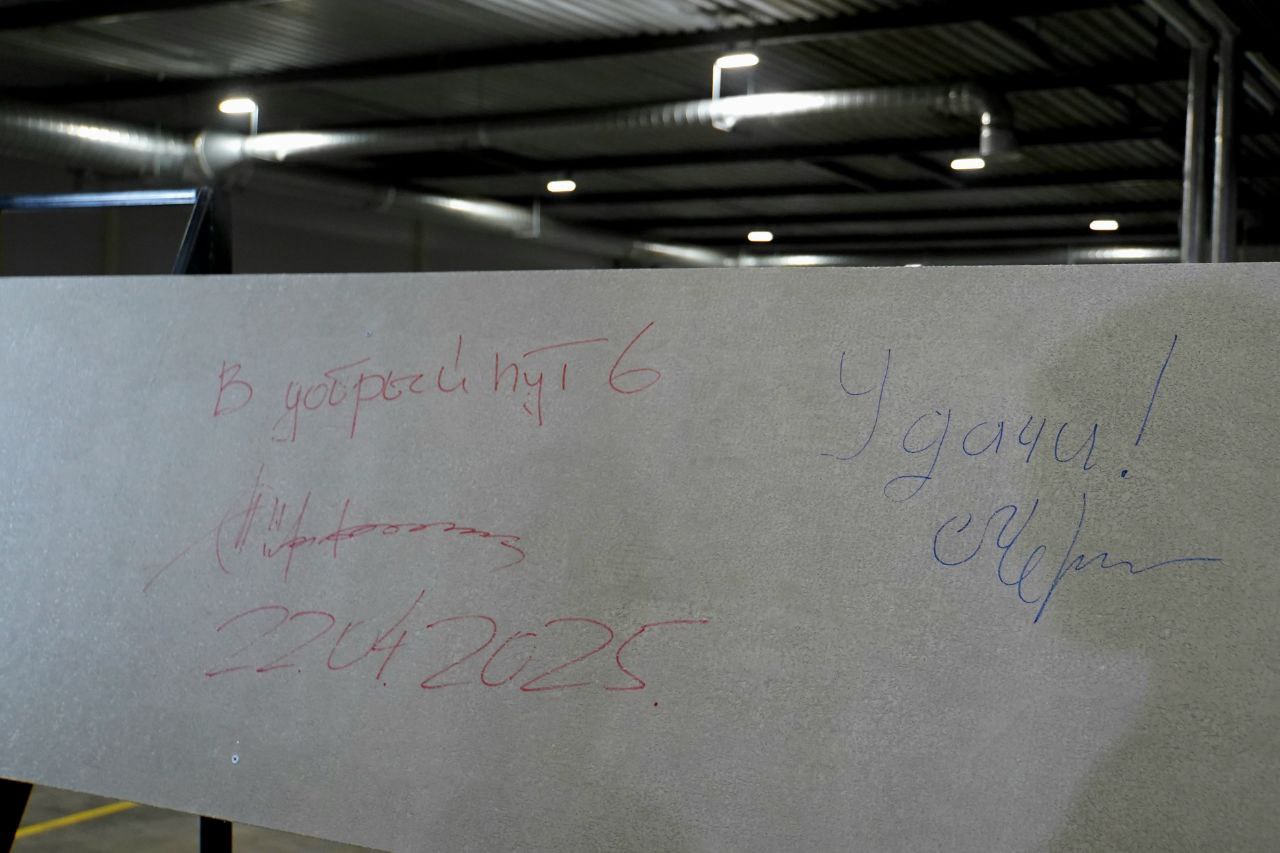 В добрый путь
22.04.2025.
Удачи!